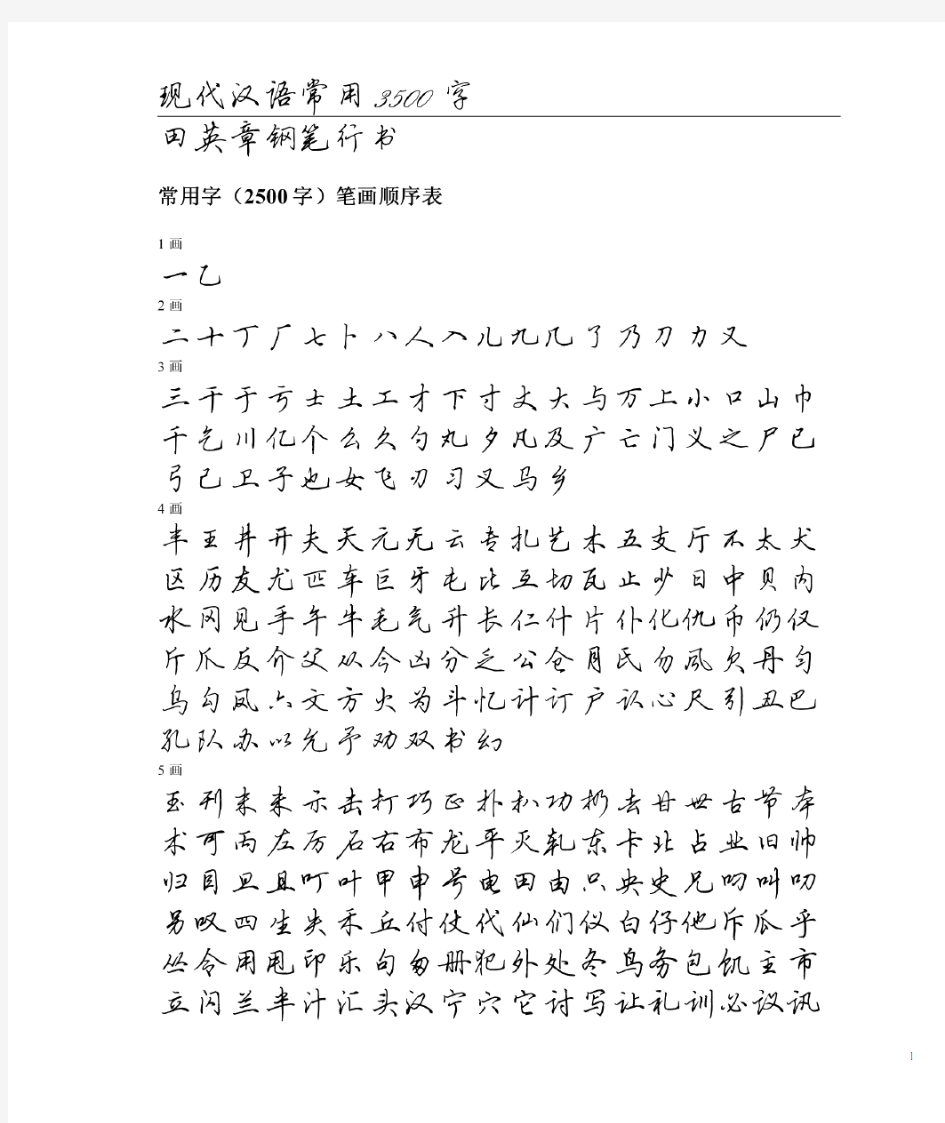 现代汉语常用3500字
田英章钢笔行书
常用字（2500字）笔画顺序表
1画
一乙
2画
二十丁厂七卜八人入儿九几了乃刀力又
3画
三干于亏士土工才下寸丈大与万上小口山巾
千乞川亿个么久勺丸夕凡及广亡门义之尸已
弓己卫子也女飞刃习叉马乡
4画
丰王井开夫天元无云专扎艺木五支厅不太犬
区历友尤匹车巨牙屯比互切瓦止少日中贝内
水冈见手午牛毛气升长仁什片仆化仇币仍仅
斤爪反介父从今凶分乏公仓月氏勿风欠丹匀
乌勾凤六文方火为斗忆计订户认心尺引丑巴
孔队办以允予劝双书幻
5画
玉刊未末示击打巧正扑扒功扔去甘世古节本
术可丙左厉石右布龙平灭轧东卡北占业旧帅
归目旦且叮叶甲申号电田由只央史兄叼叫叨
另叹四生失禾丘付仗代仙们仪白仔他斥瓜乎
丛令用甩印乐句匆册犯外处冬鸟务包饥主市
立闪兰半汁汇头汉宁穴它讨写让礼训必议讯
1